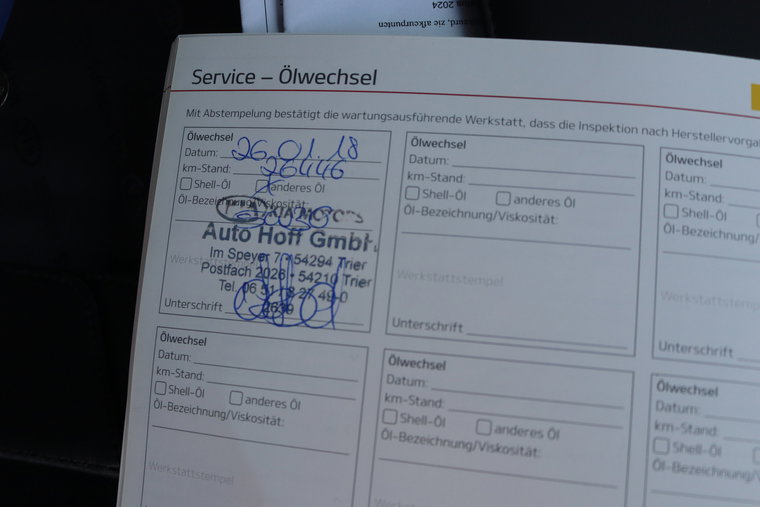 zie afkeurpunten
2024
Service – Ölwechsel
Mit Abstempelung bestätigt die wartungsausführende Werkstatt, dass die Inspektion nach Herstellervorga
Ölwechsel
Datum: 26.01.18
km-Stand: 26446
Shell-Öl anderes Öl
Öl-Bezeichnung/Viskosität:
KIA MOTORS
Auto Hoff GmbH
Im Speyer 7 · 54294 Trier
Postfach 2026 · 54210 Trier
Tel. 06 51 / 8 27 49-0
Unterschrift
Ölwechsel
Datum:
km-Stand:
Shell-Öl anderes Öl
Öl-Bezeichnung/Viskosität:
Werkstattstempel
Unterschrift
Ölwechsel
Datum:
km-Stand:
Shell-Öl
Öl-Bezeichnung/
Werkstattstemp
Unterschrift
Ölwechsel
Datum:
km-Stand:
Shell-Öl anderes Öl
Öl-Bezeichnung/Viskosität:
Werkstattstempel
Ölwechsel
Datum:
km-Stand:
Shell-Öl anderes Öl
Öl-Bezeichnung/Viskosität:
Werkstattstempel
Ölwechsel
Datum:
km-Stand:
Shell-Öl
Öl-Bezeichnung/V